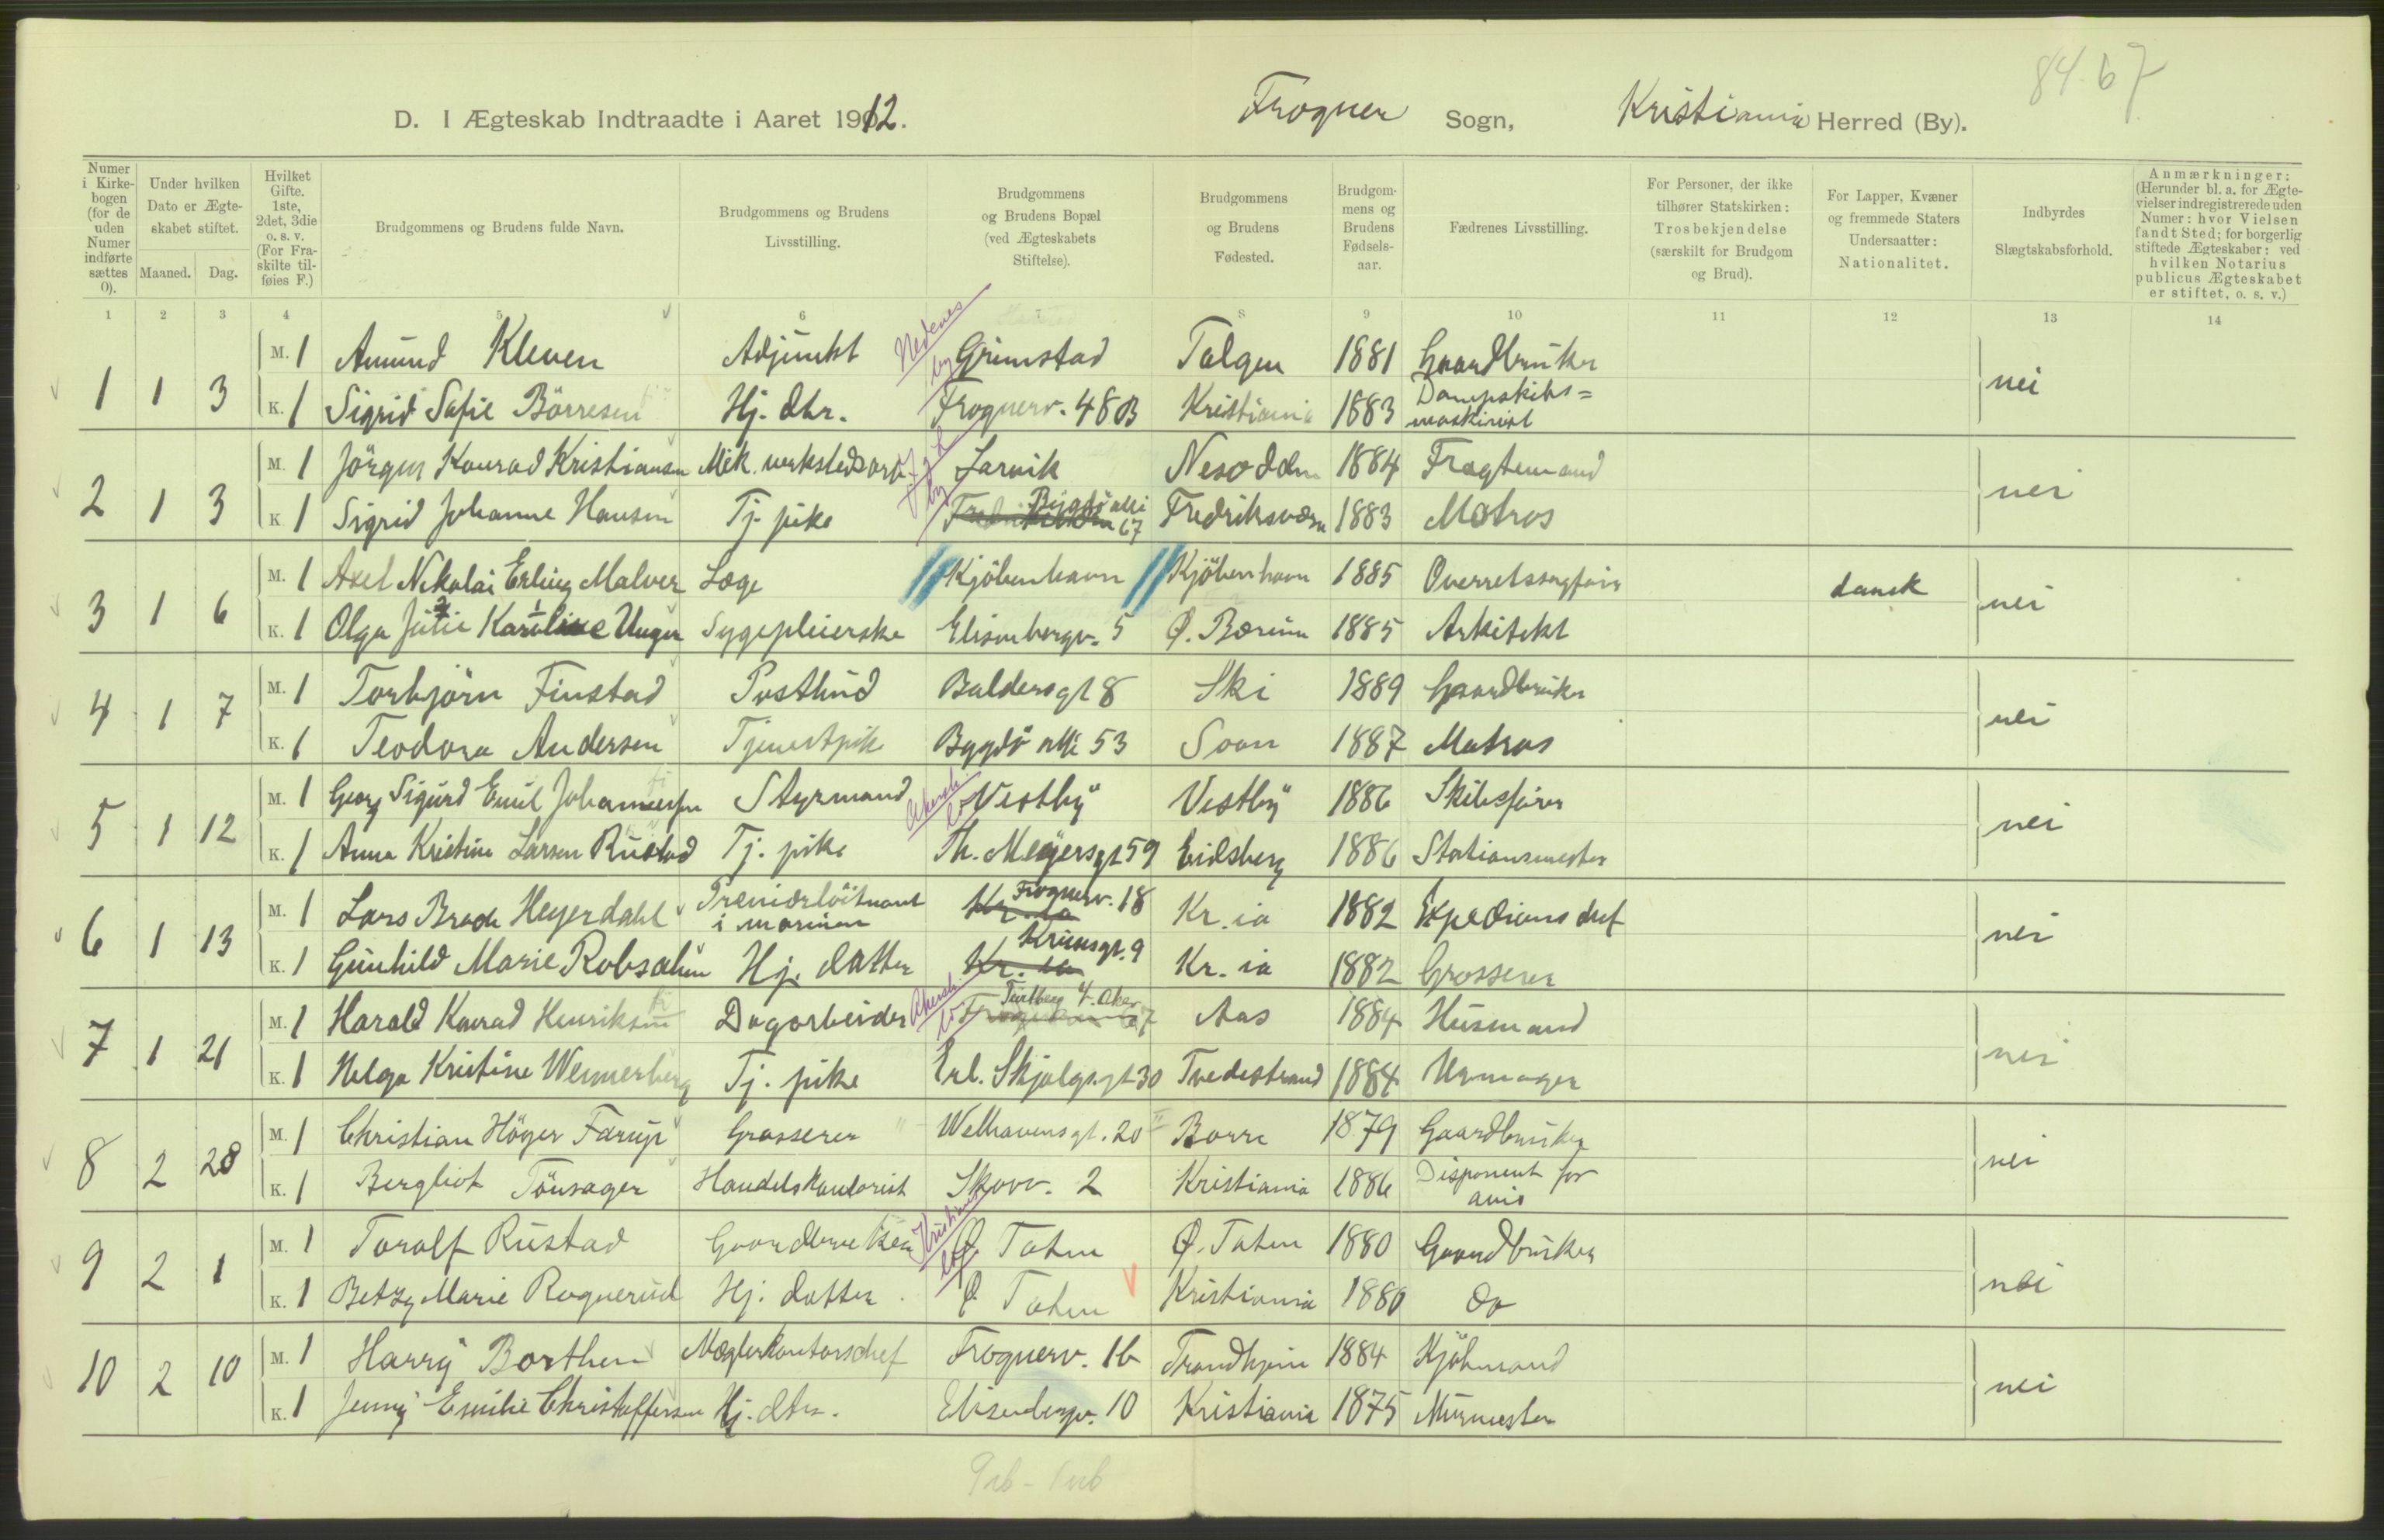 84-67
D. I Ægteskab Indtraadte i Aaret 1912. Frogner Sogn, Kristiania Herred (By).
Numer i Kirkebogen (for de uden Numer indførte sættes 0). Under hvilken Dato er Ægteskabet stiftet. Maaned. Dag. Hvilket Gifte. 1ste, 2det, 3die o. s. v. (For Fraskilte tilføies F.) Brudgommens og Brudens fulde Navn. Brudgommens og Brudens Livsstilling. Brudgommens og Brudens Bopæl (ved Ægteskabets Stiftelse). Brudgommens og Brudens Fødested. Brudgommens og Brudens Fødselsaar. Fædrenes Livsstilling. For Personer, der ikke tilhører Statskirken: Trosbekjendelse (særskilt for Brudgom og Brud). For Lapper, Kvæner og fremmede Staters Undersaatter: Nationalitet. Indbyrdes Slægtskabsforhold. Anmærkninger: (Herunder bl. a. for Ægtevielser indregistrerede uden Numer: hvor Vielsen fandt Sted; for borgerlig stiftede Ægteskaber: ved hvilken Notarius publicus Ægteskabet er stiftet, o. s. v.)
1 2 3 4 5 6 7 8 9 10 11 12 13 14
1 1 3 M. 1 Amund Kleven Adjunkt Nedenes by Grimstad Tolgen 1881 Gaardbruker nei
K. 1 Sigrid Sofie Börresen Hj. dtr. Frognerv. 48B Kristiania 1883 Dampskibs=maskinist
2 1 3 M. 1 Jörgen Konrad Kristiansen Mek. verkstedsarb. J. & L. by Larvik Nesodden 1884 Fragtemand nei
K 1 Sigrid Johanne Hansen Tj. pike Bygdö alle 67 Fredriksværn 1883 Matros
3 1 6 M. 1 Axel Nikolai Erling Malver Læge Kjöbenhavn Kjöbenhavn 1885 Overretssagförer dansk nei
K. 1 Olga Julie Karoline Unger Sygepleierske Elisenbergv. 5 Ø. Bærum 1885 Arkitekt
4 1 7 M. 1 Torbjörn Finstad Postbud Baldersgt 8 Ski 1889 Gaardbruker nei
K. 1 Teodora Andersen Tjenestpike Bygdö alle 53 Soon 1887 Matros
5 1 12 M. 1 Georg Sigurd Emil Johannessen Styrmand Akersh. Vestby Vestby 1886 Skibsförer nei
K. 1 Anna Kristine Larsen Rustad Tj. pike Th. Meyersgt 59 Eidsberg 1886 Stationsmester
6 1 13 M. 1 Lars Brede Heyerdahl Premierlöitnant i marinen Kr.ia Frognerv. 18 Kr.ia 1882 Expeditionschef nei
K. 1 Gunhild Marie Robsahm Hj. datter Kr.ia Krumsgt. 9 Kr.ia 1882 Grosserer
7 1 21 M. 1 Harald Konrad Henriksen Dagarbeider Akersh. 4. Aker Aas 1884 Husmand nei
K. 1 Helga Kristine Wennerberg Tj. pike Erl. Skjalgs.gt 30 Tvedestrand 1884 Urmager
8 2 28 M. 1 Christian Höyer Farup Grosserer Welhavensgt. 20 Borre 1879 Gaardbruker nei
K. 1 Bergliot Tönsager Handelskontorist Skovv. 2 Kristiania 1886 Disponent for avis
9 2 1 M. 1 Toralf Rustad Gaardbruker Kristians Ø. Toten Ø. Toten 1880 Gaardbruker nei
K. 1 Betzy Marie Rognerud Hj. datter Ø Toten Kristiania 1880 Do
10 2 10 M. 1 Harry Borthen Mæglerkontorschef Frognerv. 1b Trondhjem 1884 Kjöbmand nei
K. 1 Jenny Emilie Christoffersen Hj. dtr. Elisenbergv. 10 Kristiania 1875 Murmester